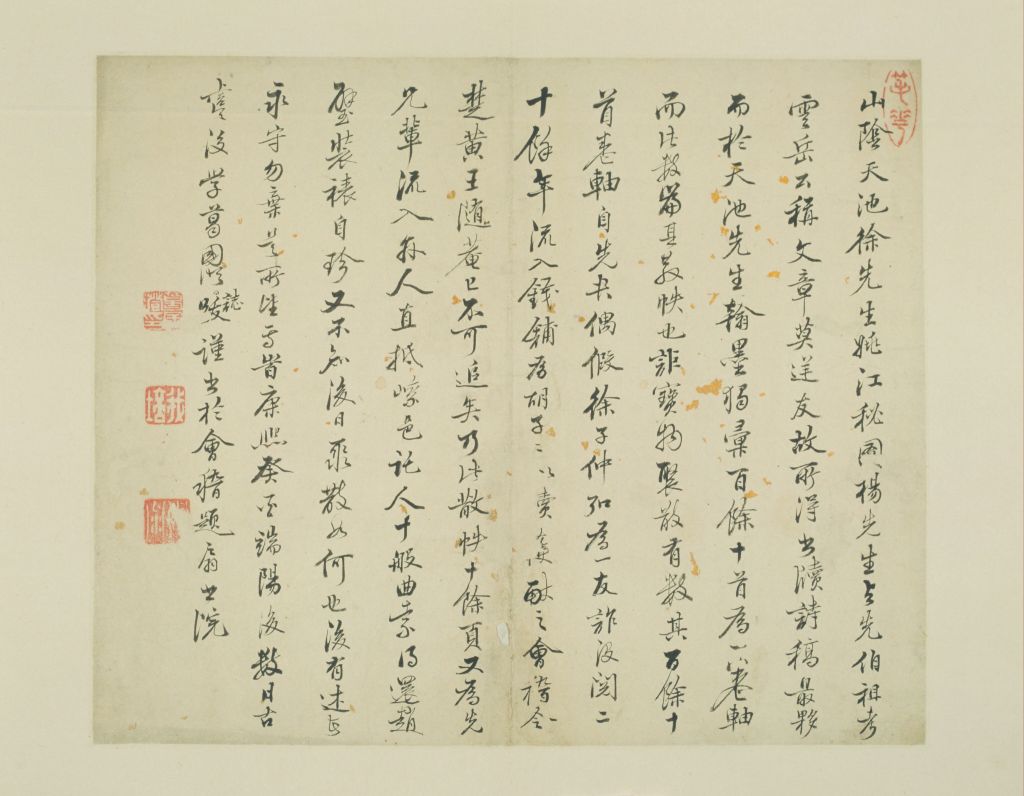 山陰天池徐先生姚江秘圖楊先生與先伯祖考
雲岳公稱文章莫逆友故所得書牘詩稿最夥
而於天池先生翰墨獨彙百餘十首為一卷軸
而此數篇其散帙也詎寶物聚散有數其百餘十
首卷軸自先大偶假徐子仲弘為一友詐沒閱二
十餘年流入錢鋪為胡子以賣嘏酬之會稽令
楚黃王隨菴已不可追矣乃此散帙十餘頁又為先
兄輩流入族人直抵嵊邑託人十般曲索得還趙
璧裝裱自珍又不知後日聚散如何也後有述者
永守勿棄是所望焉旨康熙癸酉端陽後數日古
虞後學葛國謹書於會稽題扇書院
誌